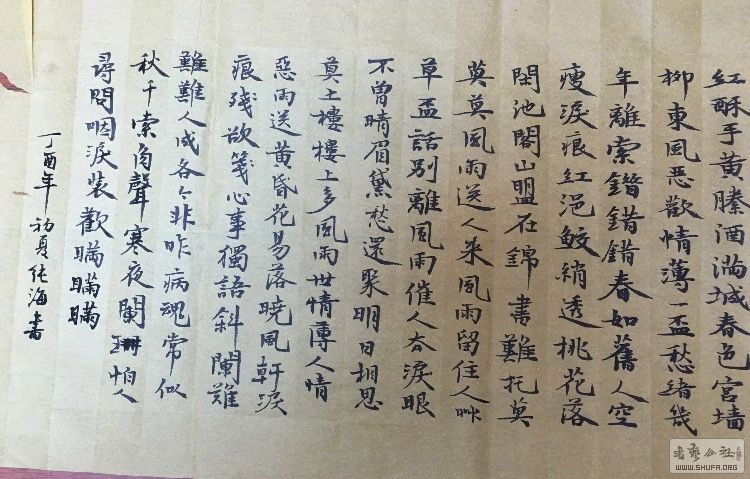 紅酥手黃縢酒滿城春色宮墻
柳東風惡歡情薄一盃愁緒幾
年離索錯錯錯春如舊人空
瘦淚痕紅浥鮫綃透桃花落
閑池閣山盟在錦書難托莫
莫莫風雨送人來風雨留住人艸
草盃話別離風雨催人去淚眼
不曾晴眉黛愁還聚明日相思
莫上樓樓上多風雨世情博人情
惡雨送黃昏花易落曉風軒淚
痕殘欲箋心事獨語斜闌難
難難人成各今非昨病魂常似
秋千索角聲寒夜闌珊怕人
尋問咽淚裝歡瞞瞞瞞
丁酉年初夏純海書
書藝公社
WWW.SHUFA.ORG